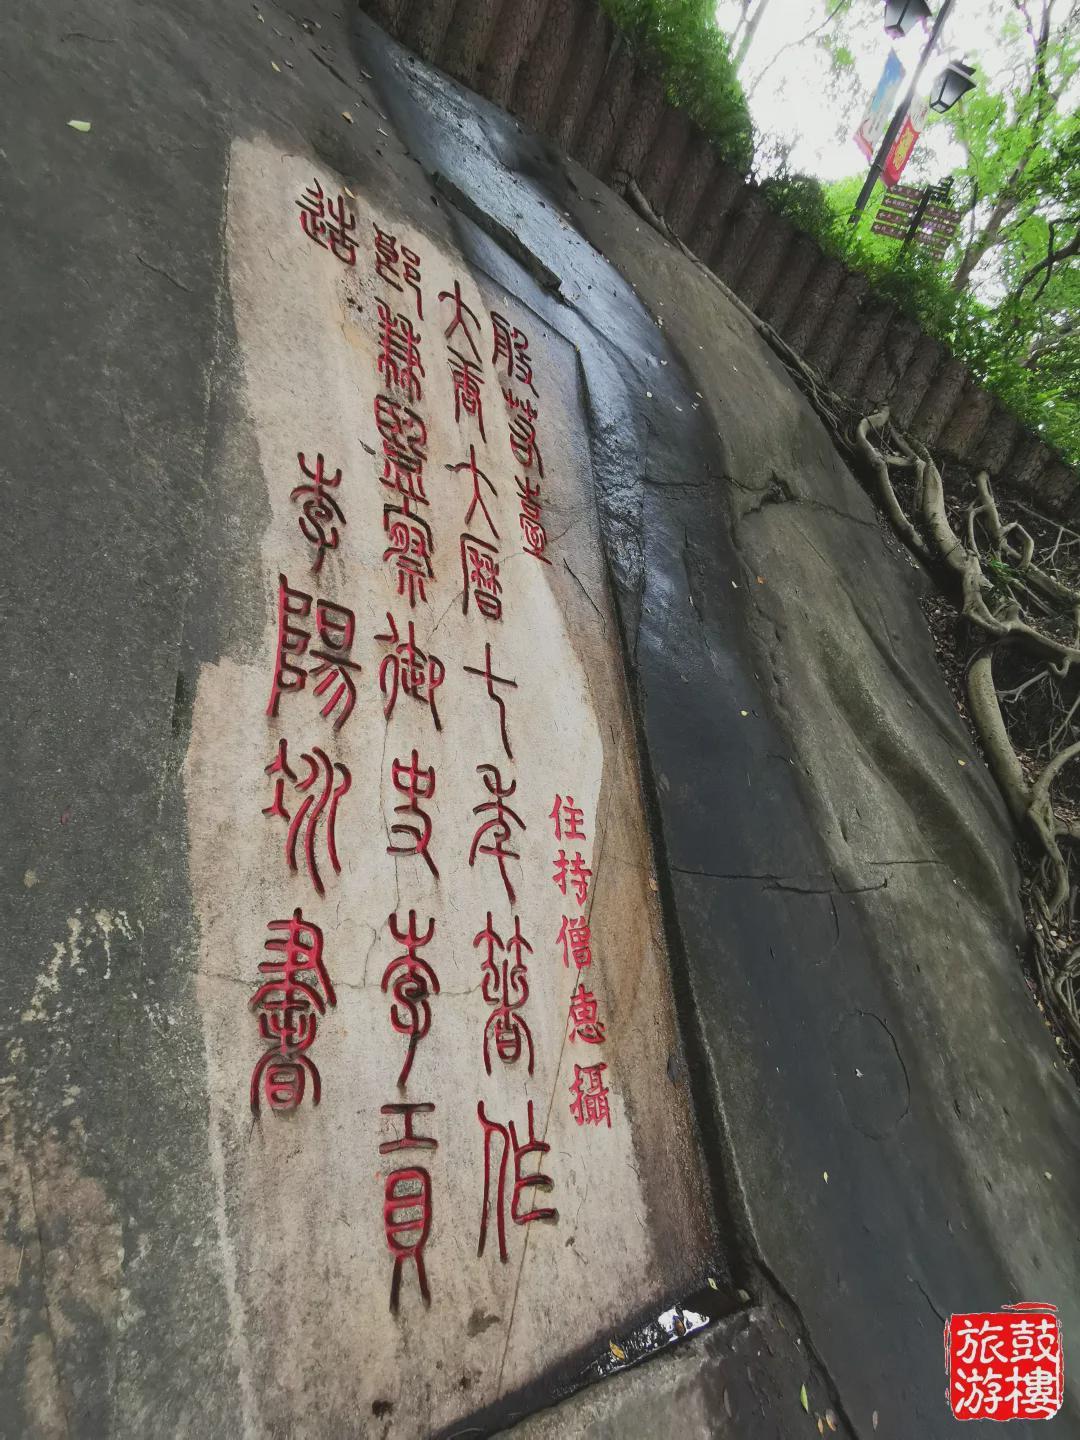 般若臺
住持僧惠攝
大唐大曆七年著作
郎兼監察御史李貢
造
李陽冰書
鼓樓
旅游